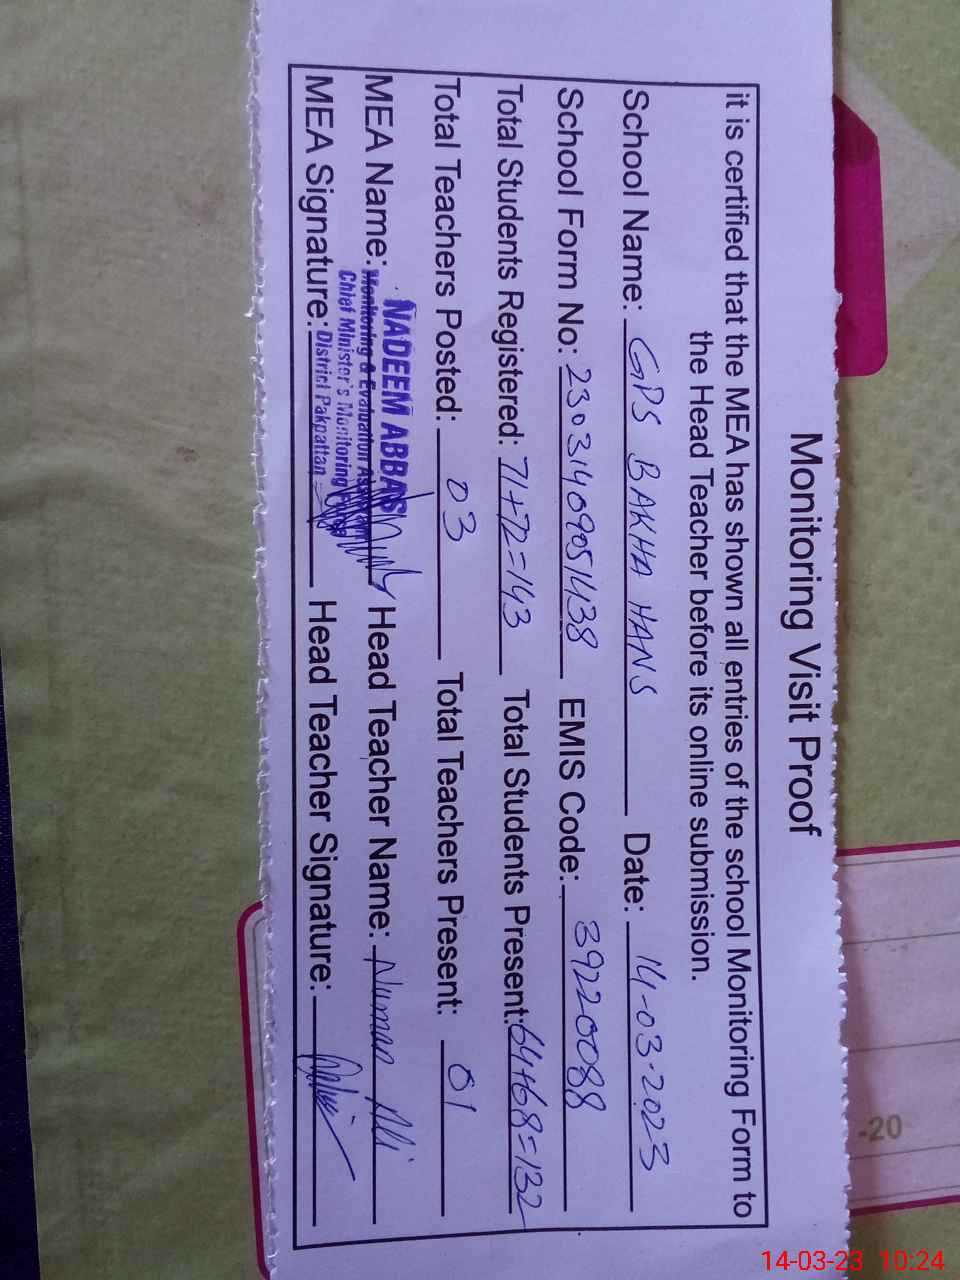 Monitoring Visit Proof
it is certified that the MEA has shown all entries of the school Monitoring Form to
the Head Teacher before its online submission.
School Name: GPS BAKHA HANS Date: 14-03-2023
School Form No: 23031409051438 EMIS Code: 39220088
Total Students Registered: 71+72=143 Total Students Present: 64+68=132
Total Teachers Posted: 03 Total Teachers Present: 01
MEA Name: NADEEM ABBAS Head Teacher Name: Numan Ali
Monitoring & Evaluation
Chief Minister's Monitoring
MEA Signature: District Pakpattan Head Teacher Signature:
-20
14-03-23 10:24